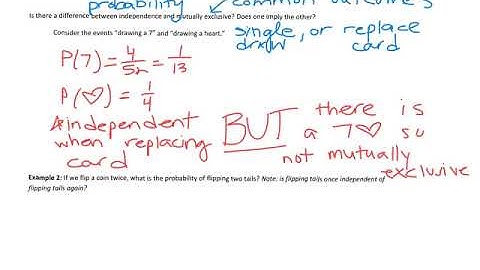 probability ↙ common outcomes
Is there a difference between independence and mutually exclusive? Does one imply the other?
Consider the events "drawing a 7" and "drawing a heart."
single, or replace
draw card
P(7) = 4/52 = 1/13
P(♡) = 1/4
*independent
when replacing
card
BUT there is
a 7♡ so
not mutually
exclusive
Example 2: If we flip a coin twice, what is the probability of flipping two tails? Note: is flipping tails once independent of
flipping tails again?